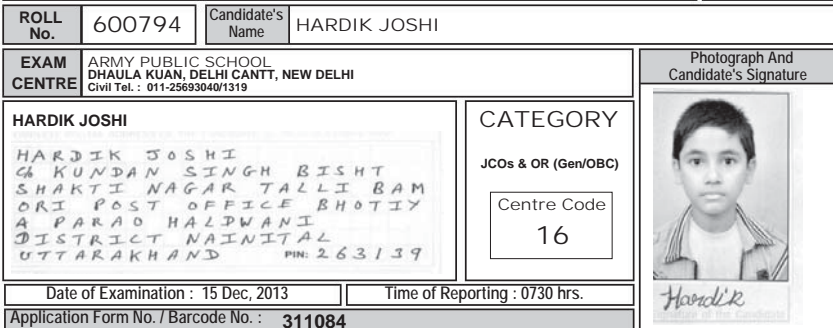 ROLL No. 600794 Candidate's Name HARDIK JOSHI
EXAM CENTRE
ARMY PUBLIC SCHOOL
DHAULA KUAN, DELHI CANTT, NEW DELHI
Civil Tel. : 011-25693040/1319
Photograph And
Candidate's Signature
HARDIK JOSHI
HARDIK JOSHI
C/o KUNDAN SINGH BISHT
SHAKTI NAGAR TALLI BAM
ORI POST OFFICE BHOTIY
A PARAO HALDWANI
DISTRICT NAINITAL
UTTARAKHAND PIN: 263139
CATEGORY
JCOs & OR (Gen/OBC)
Centre Code
16
Hardik
Signature of the Candidate
Date of Examination : 15 Dec, 2013 Time of Reporting : 0730 hrs.
Application Form No. / Barcode No. : 311084